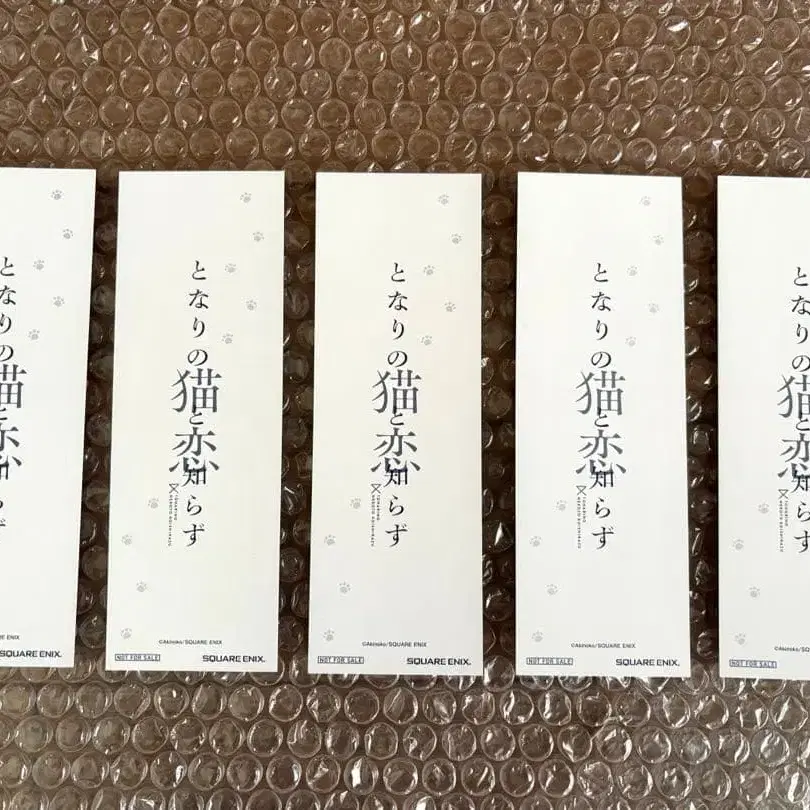 となりの猫と恋知らず
SQUARE ENIX.
となりの猫と恋知らず
©Akinoko/SQUARE ENIX
NOT FOR SALE
SQUARE ENIX.
となりの猫と恋知らず
©Akinoko/SQUARE ENIX
NOT FOR SALE
SQUARE ENIX.
となりの猫と恋知らず
©Akinoko/SQUARE ENIX
NOT FOR SALE
SQUARE ENIX.
となりの猫と恋知らず
NOT FOR SALE